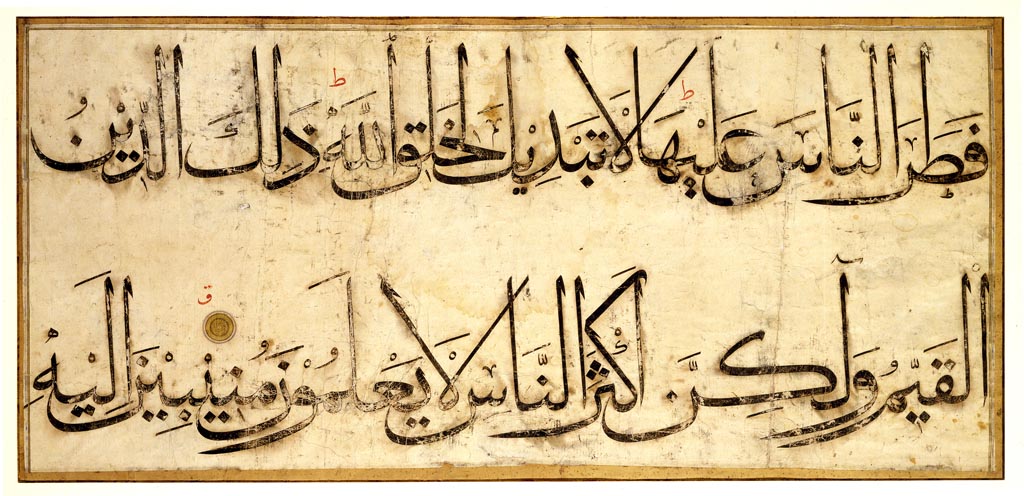 فَطَرَ النَّاسَ عَلَيْهَا لَا تَبْدِيلَ لِخَلْقِ اللَّهِ ذَٰلِكَ الدِّينُ
الْقَيِّمُ وَلَٰكِنَّ أَكْثَرَ النَّاسِ لَا يَعْلَمُونَ مُنِيبِينَ إِلَيْهِ